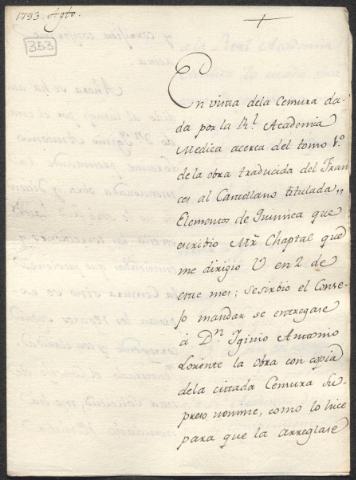 1793. Agto.
353
En vista dela Censura da-
da por la Rl. Academia
Medica acerca del tomo 1º.
de la obra traducida del Fran-
ces al Castellano titulada,,
Elementos de Quimica que
escribio Mr. Chaptal que
me dirigió V en 2 de
este mes; se sirbio el Conse-
jo mandar se entregase
á Dn. Iginio Antonio
Lorente la obra con copia
dela cittada Censura su-
preso nomine, como lo hice
para que la arreglase